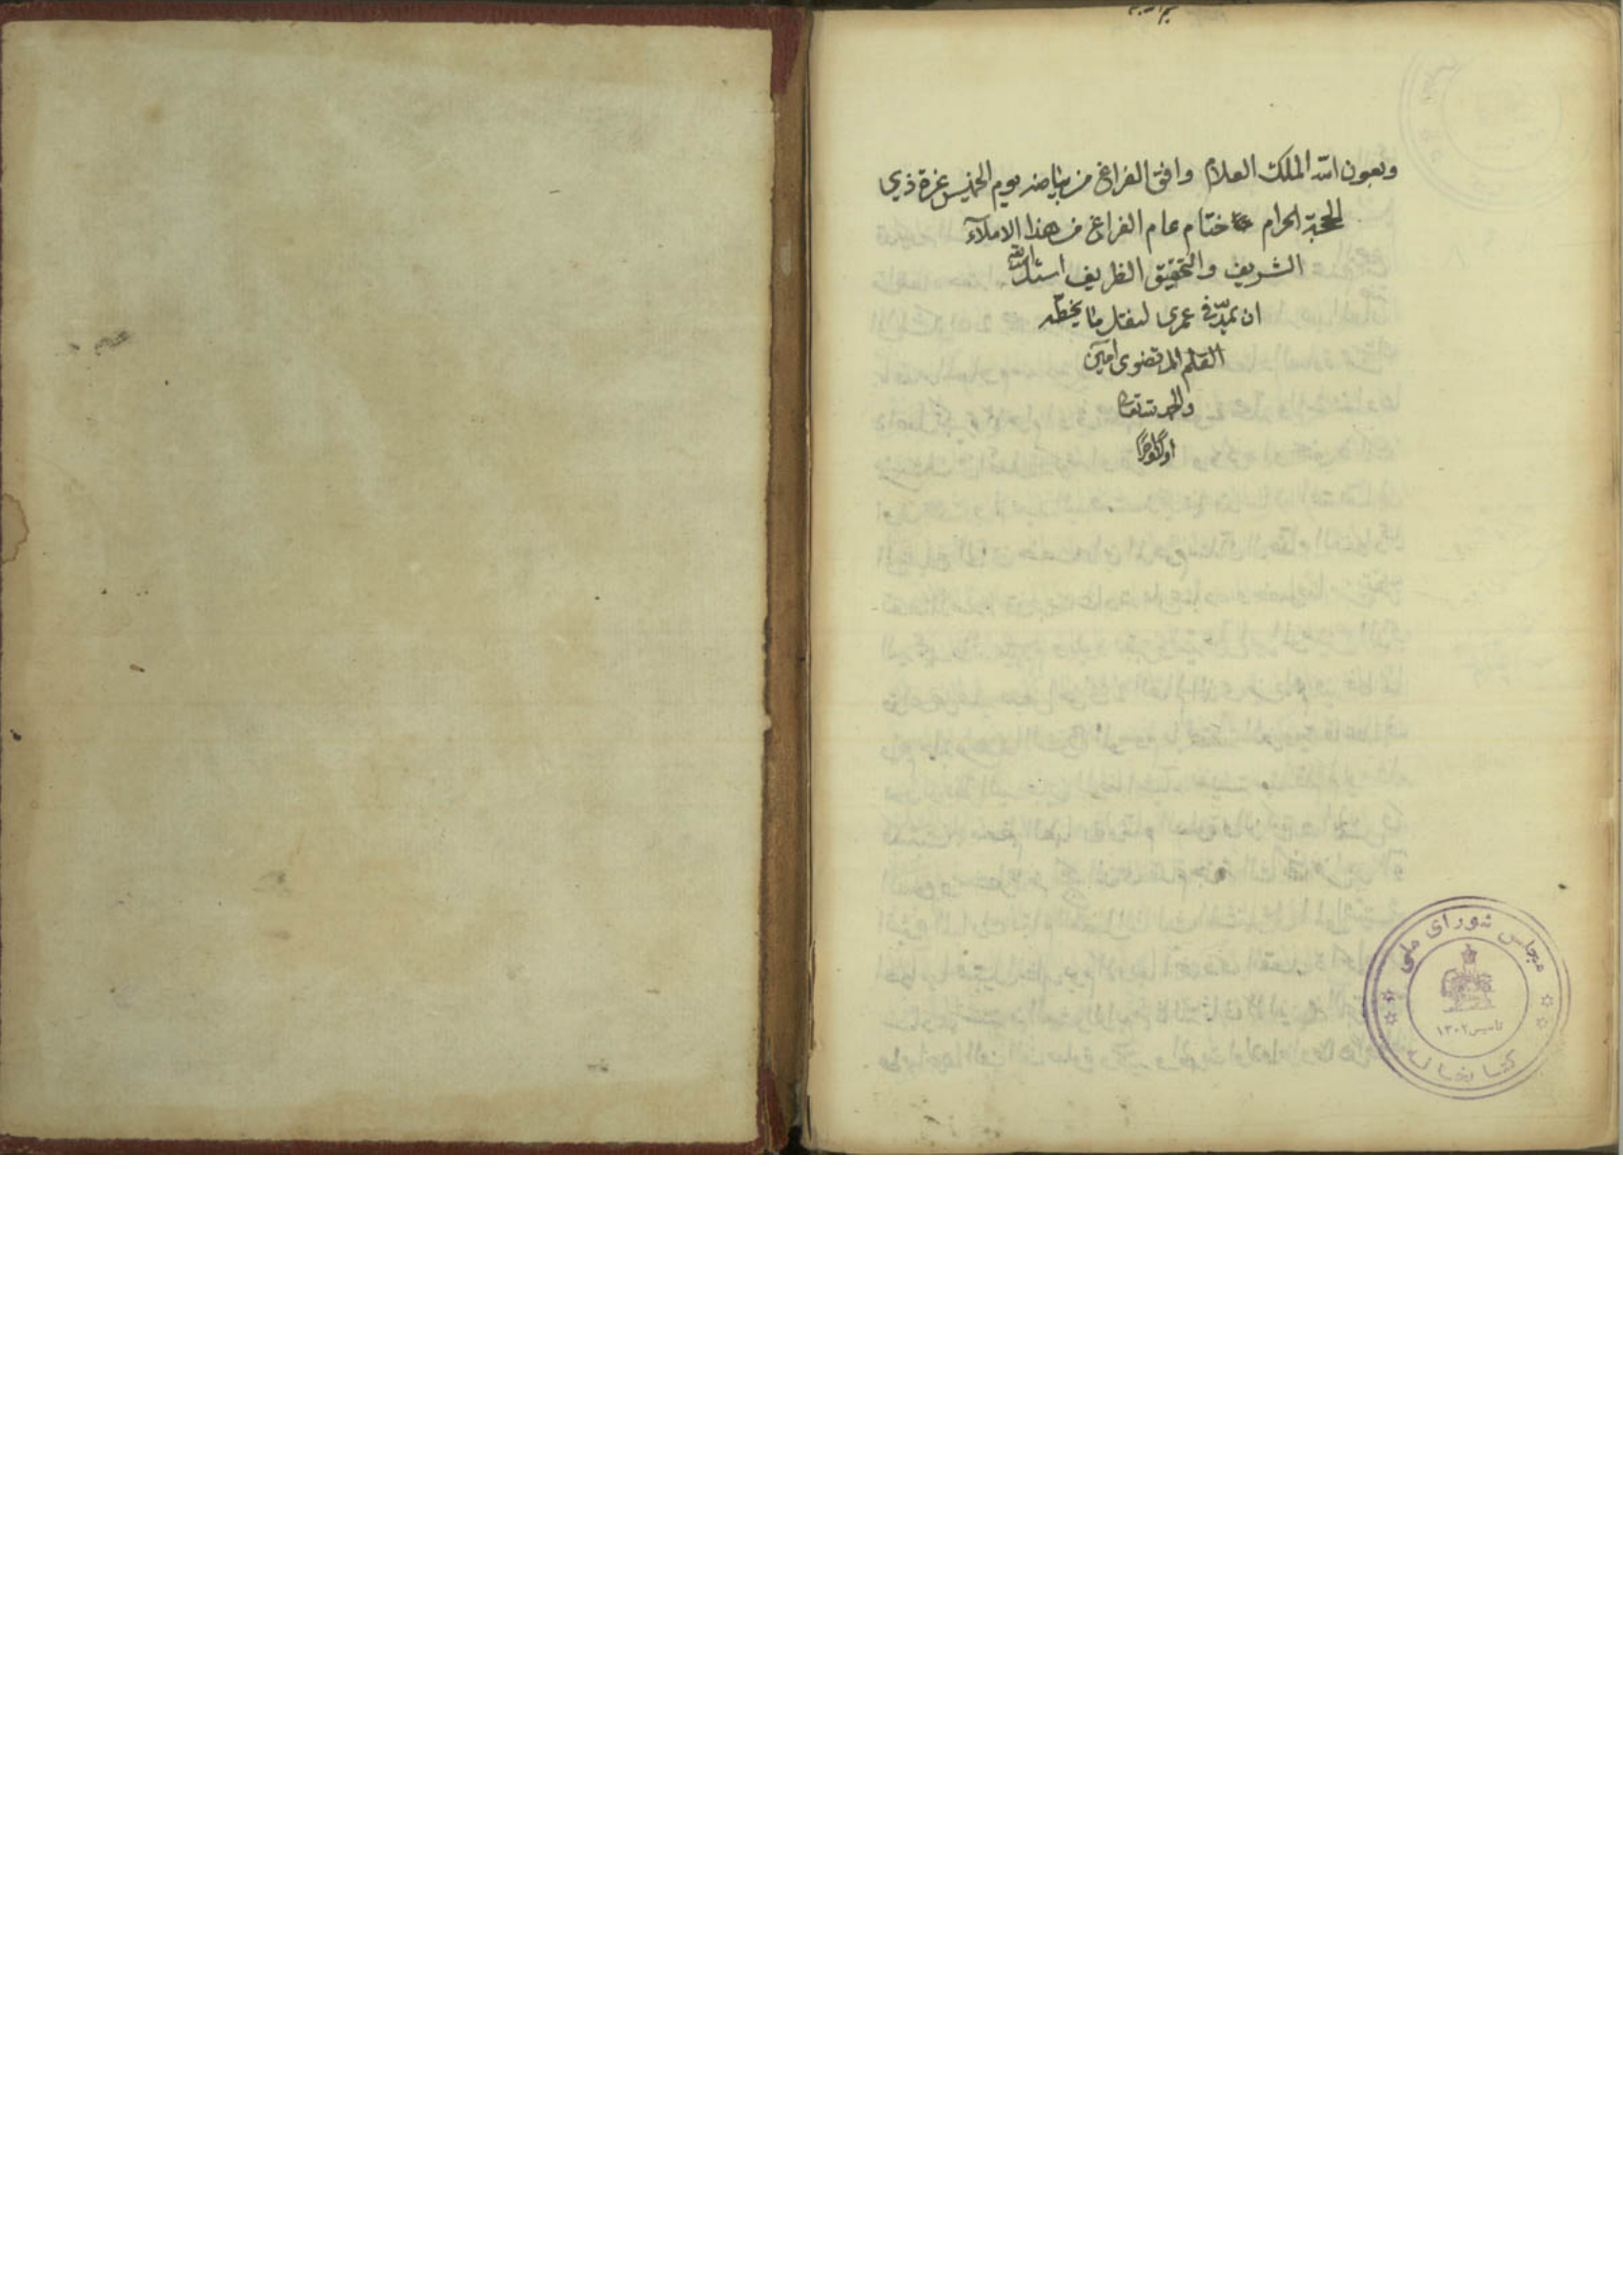 وبعون الله الملك العلام وافق الفراغ من بياضه يوم الخميس غرة ذي
الحجة الحرام ختام عام الفراغ من هذا الاملآء
الشريف والتحقيق الظريف اسئل الله
ان يمدّ في عمرى لنقل ما يخطّه
القلم المرتضوى امين
والحمد لله تعالى
اولا واخرا
مجلس شورای ملی
تاسیس ۱۳۰۲
کتابخانه